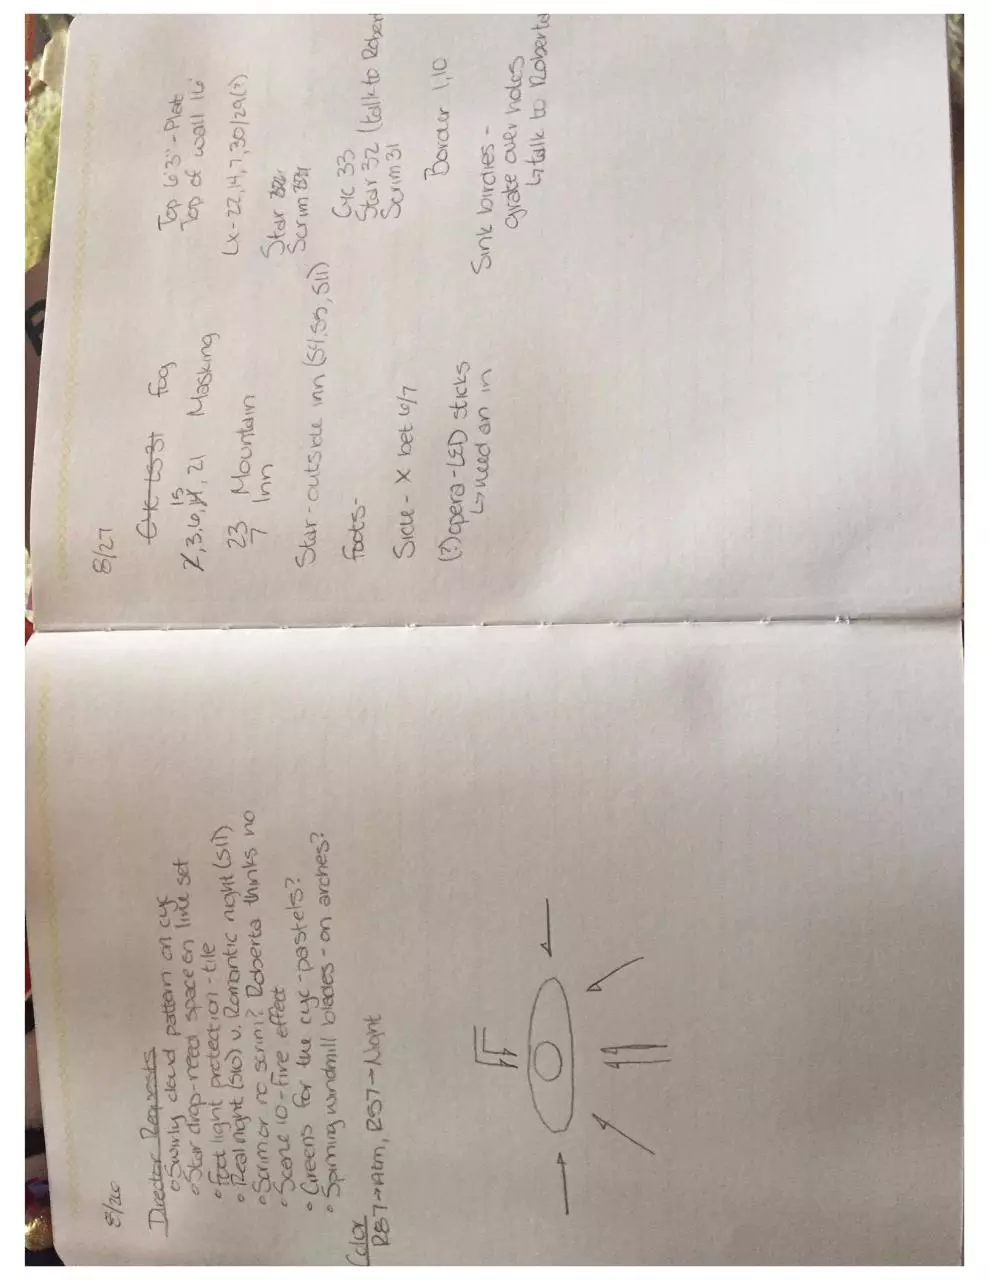 8/26
Director Requests
◦ Swirly cloud pattern on cyc
◦ Star drop-need space on line set
◦ Foot light protection-tile
◦ Real night (S10) v. Romantic night (S11)
◦ Scrim or no scrim? Roberta thinks no
◦ Scene 10-fire effect
◦ Greens for the cyc-pastels?
◦ Spinning windmill blades-on arches?
Color
R87→Atm, R57→Night
8/27
Fog
2,3,6,14,21 Masking
15
23 Mountain
7 Inn
Star-outside inn (S4,S5,S11)
Foots-
Side- X bet 6/7
(?)opera-LED sticks
↳need an in
Top 6'3"-Plate
Top of wall 16'
Lx-22,14,7,30/29(?)
Star
Scrim
Cyc 33
Star 32 (talk to Rober
Scrim 31
Border 1,10
Sink birdies-
grate over holes
↳talk to Roberta